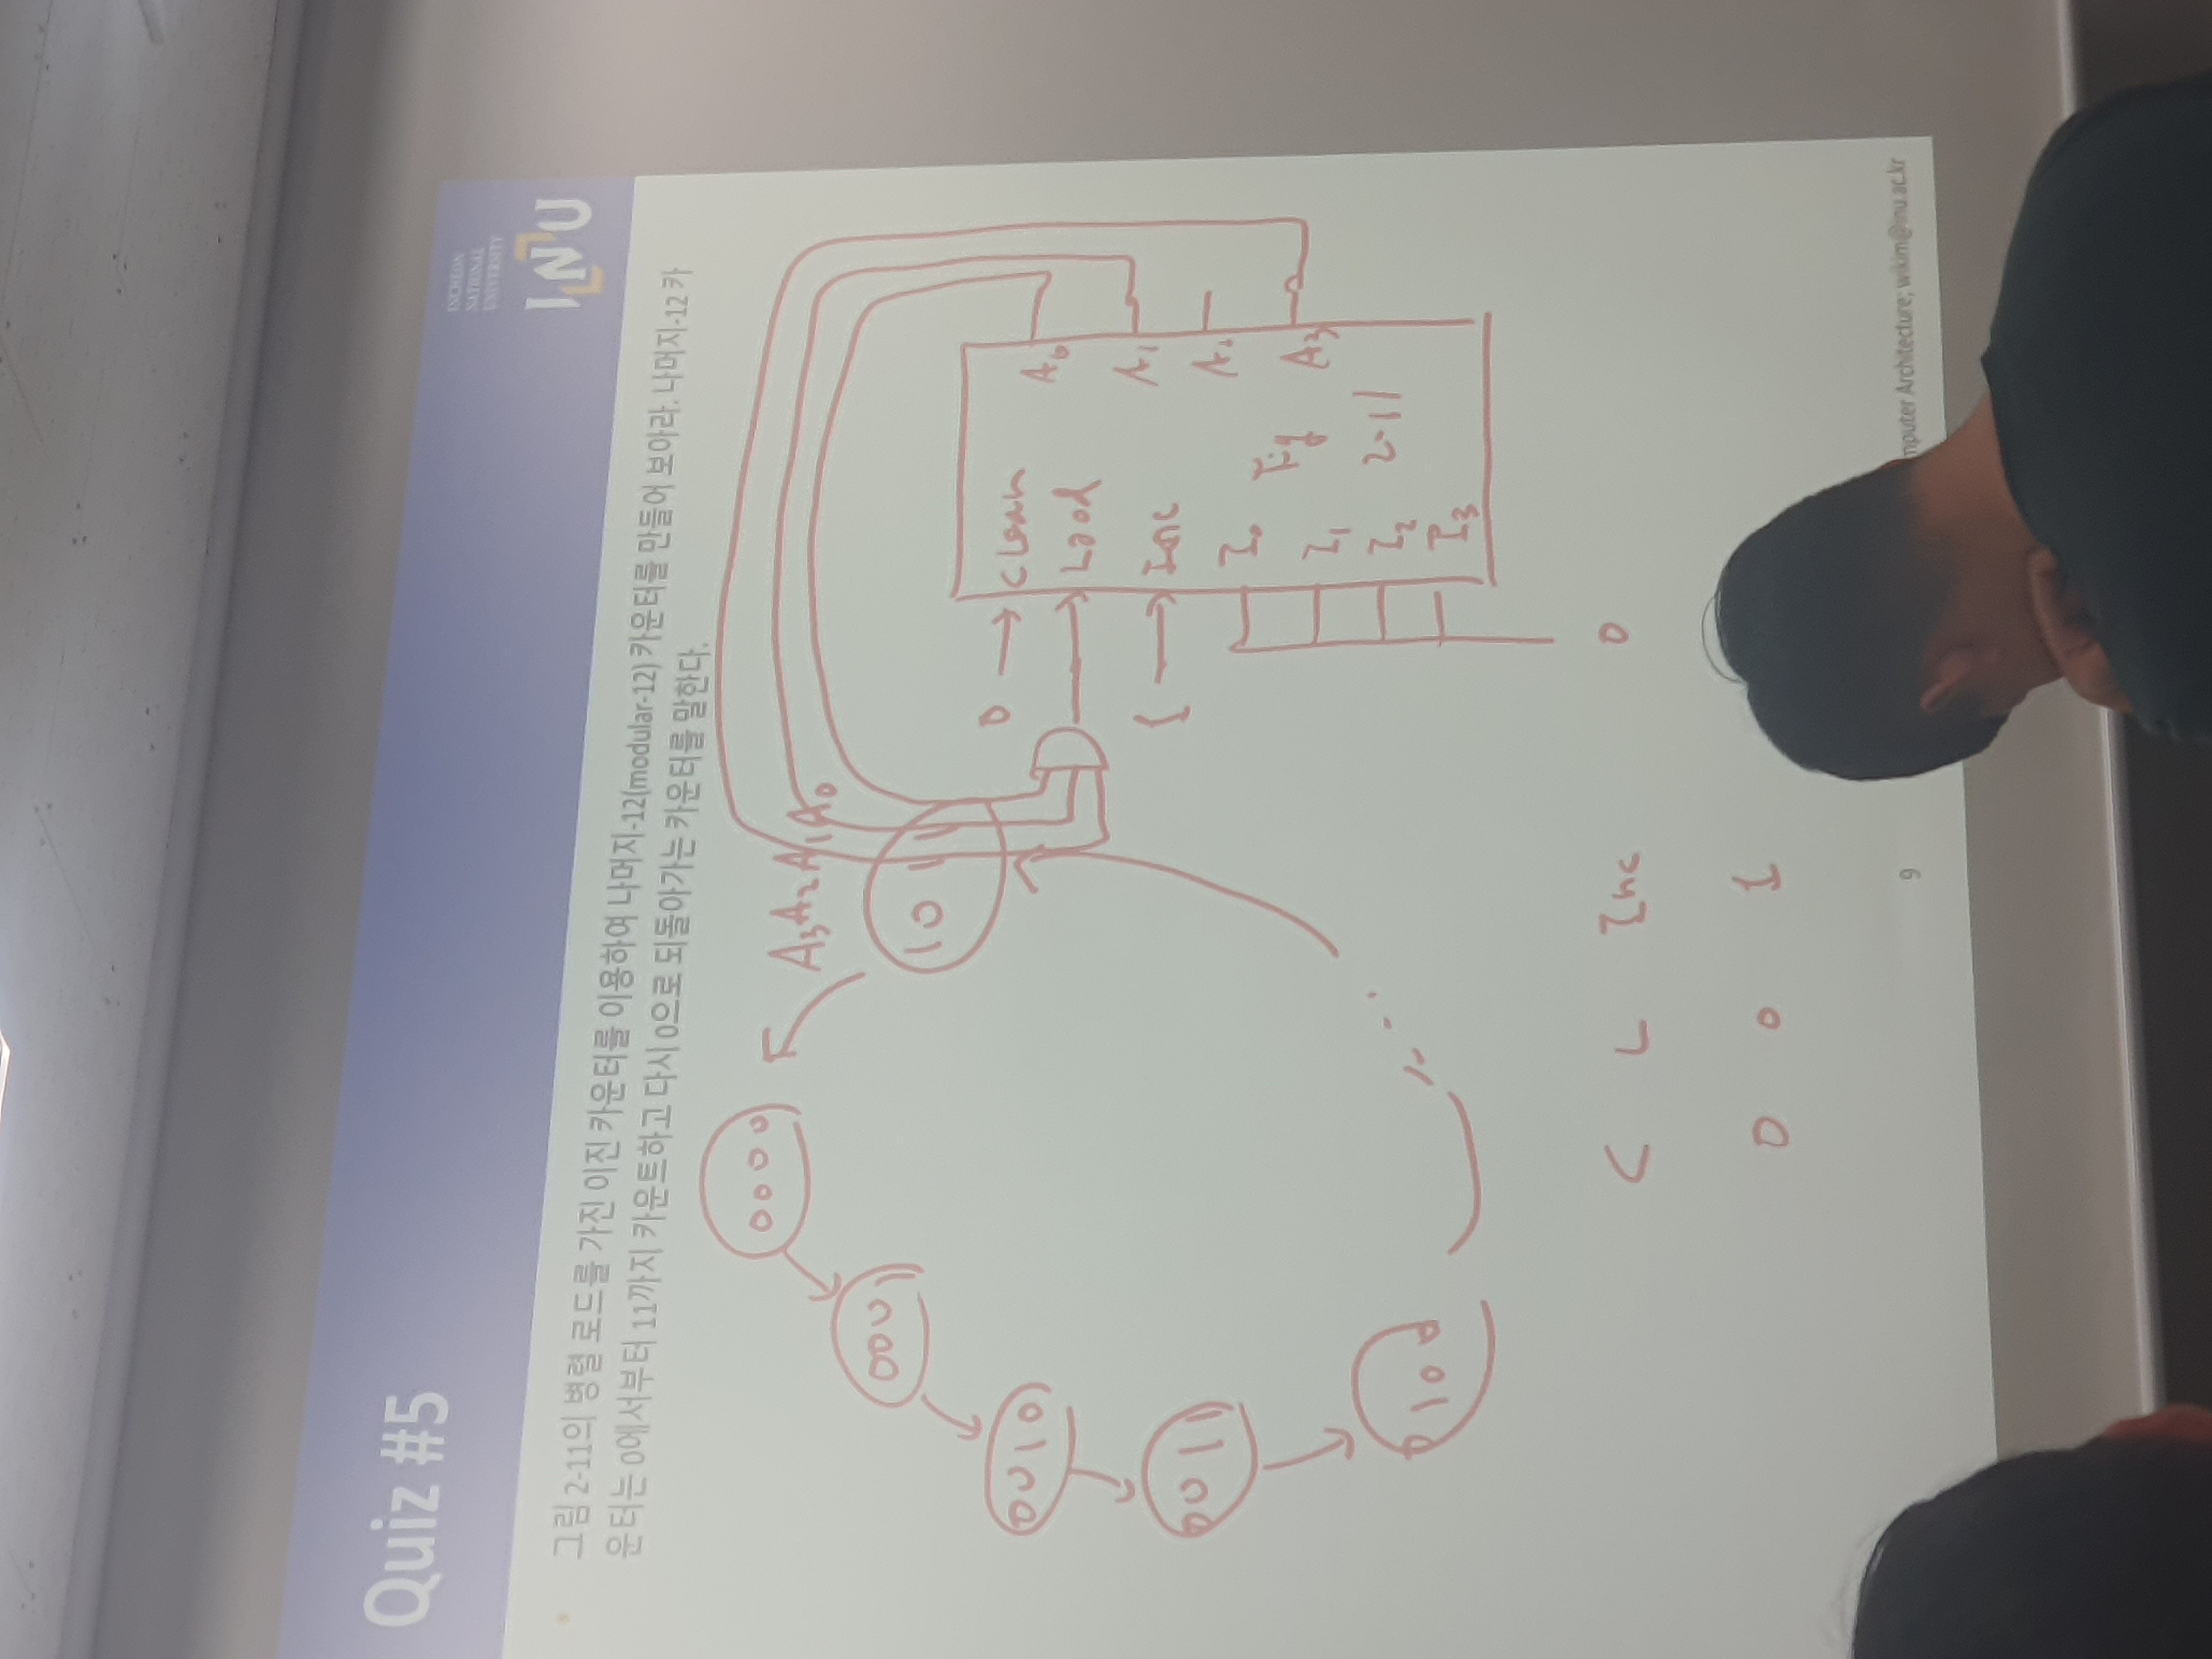 Quiz #5
INCHEON
NATIONAL
UNIVERSITY
INU
그림 2-11의 병렬 로드를 가진 이진 카운터를 이용하여 나머지-12(modular-12) 카운터를 만들어 보아라. 나머지-12 카
운터는 0에서부터 11까지 카운트하고 다시 0으로 되돌아가는 카운터를 말한다.
0000
A3 A2 A1 A0
0001
1011
0010
0 → Clear
A0
Load
0011
1 → Inc
A1
I0
A2
Fig
I1
A3
0100
I2
2-11
I3
C L Inc
0
0 0 1
9
mputer Architecture; wikim@inu.ac.kr